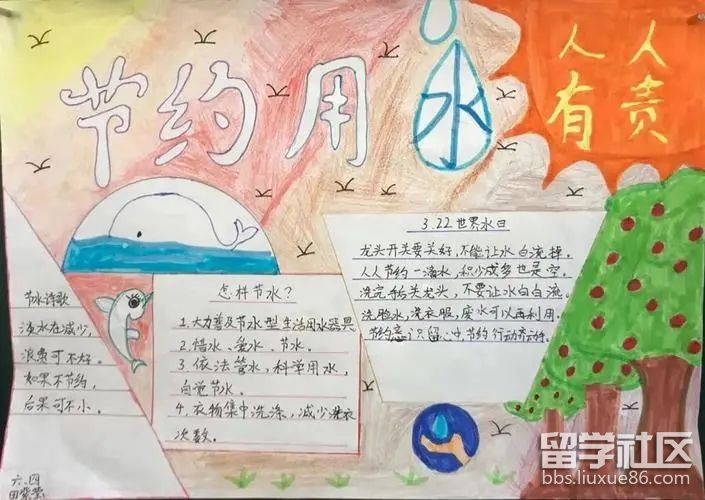 节约用水
人人
有责
节水诗歌
淡水在减少,
浪费可不好。
如果不节约,
后果可不小。
怎样节水?
1.大力普及节水型生活用水器具
2.惜水、爱水、节水。
3.依法管水,科学用水,
自觉节水。
4.衣物集中洗涤,减少洗衣
次数。
3.22世界水日
龙头开关要关好,不能让水白流掉。
人人节约一滴水,积少成多也是宝。
洗完转头龙头,不要让水白白流。
洗脸水,洗衣服,废水可以再利用。
节约意识留心中节约行动
六.四
留学社区
bbs.liuxue86.com